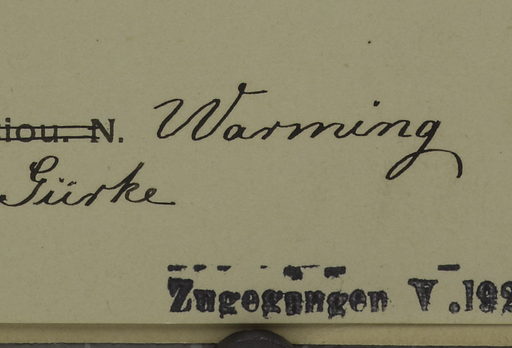 iou. N. Warming
Gürke
Zugegangen V.192